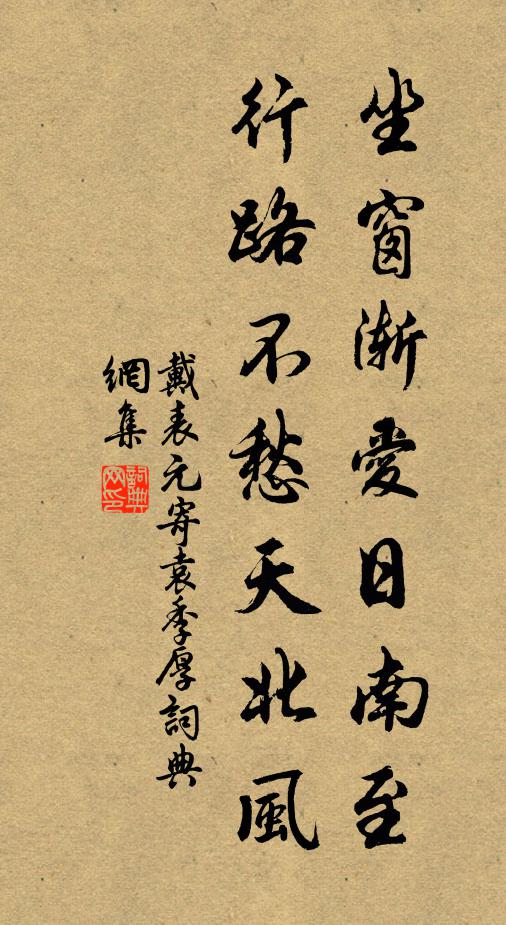 坐窗漸愛日南至
行路不愁天北風
戴表元寄袁季厚詞典
網集
詞典
网印